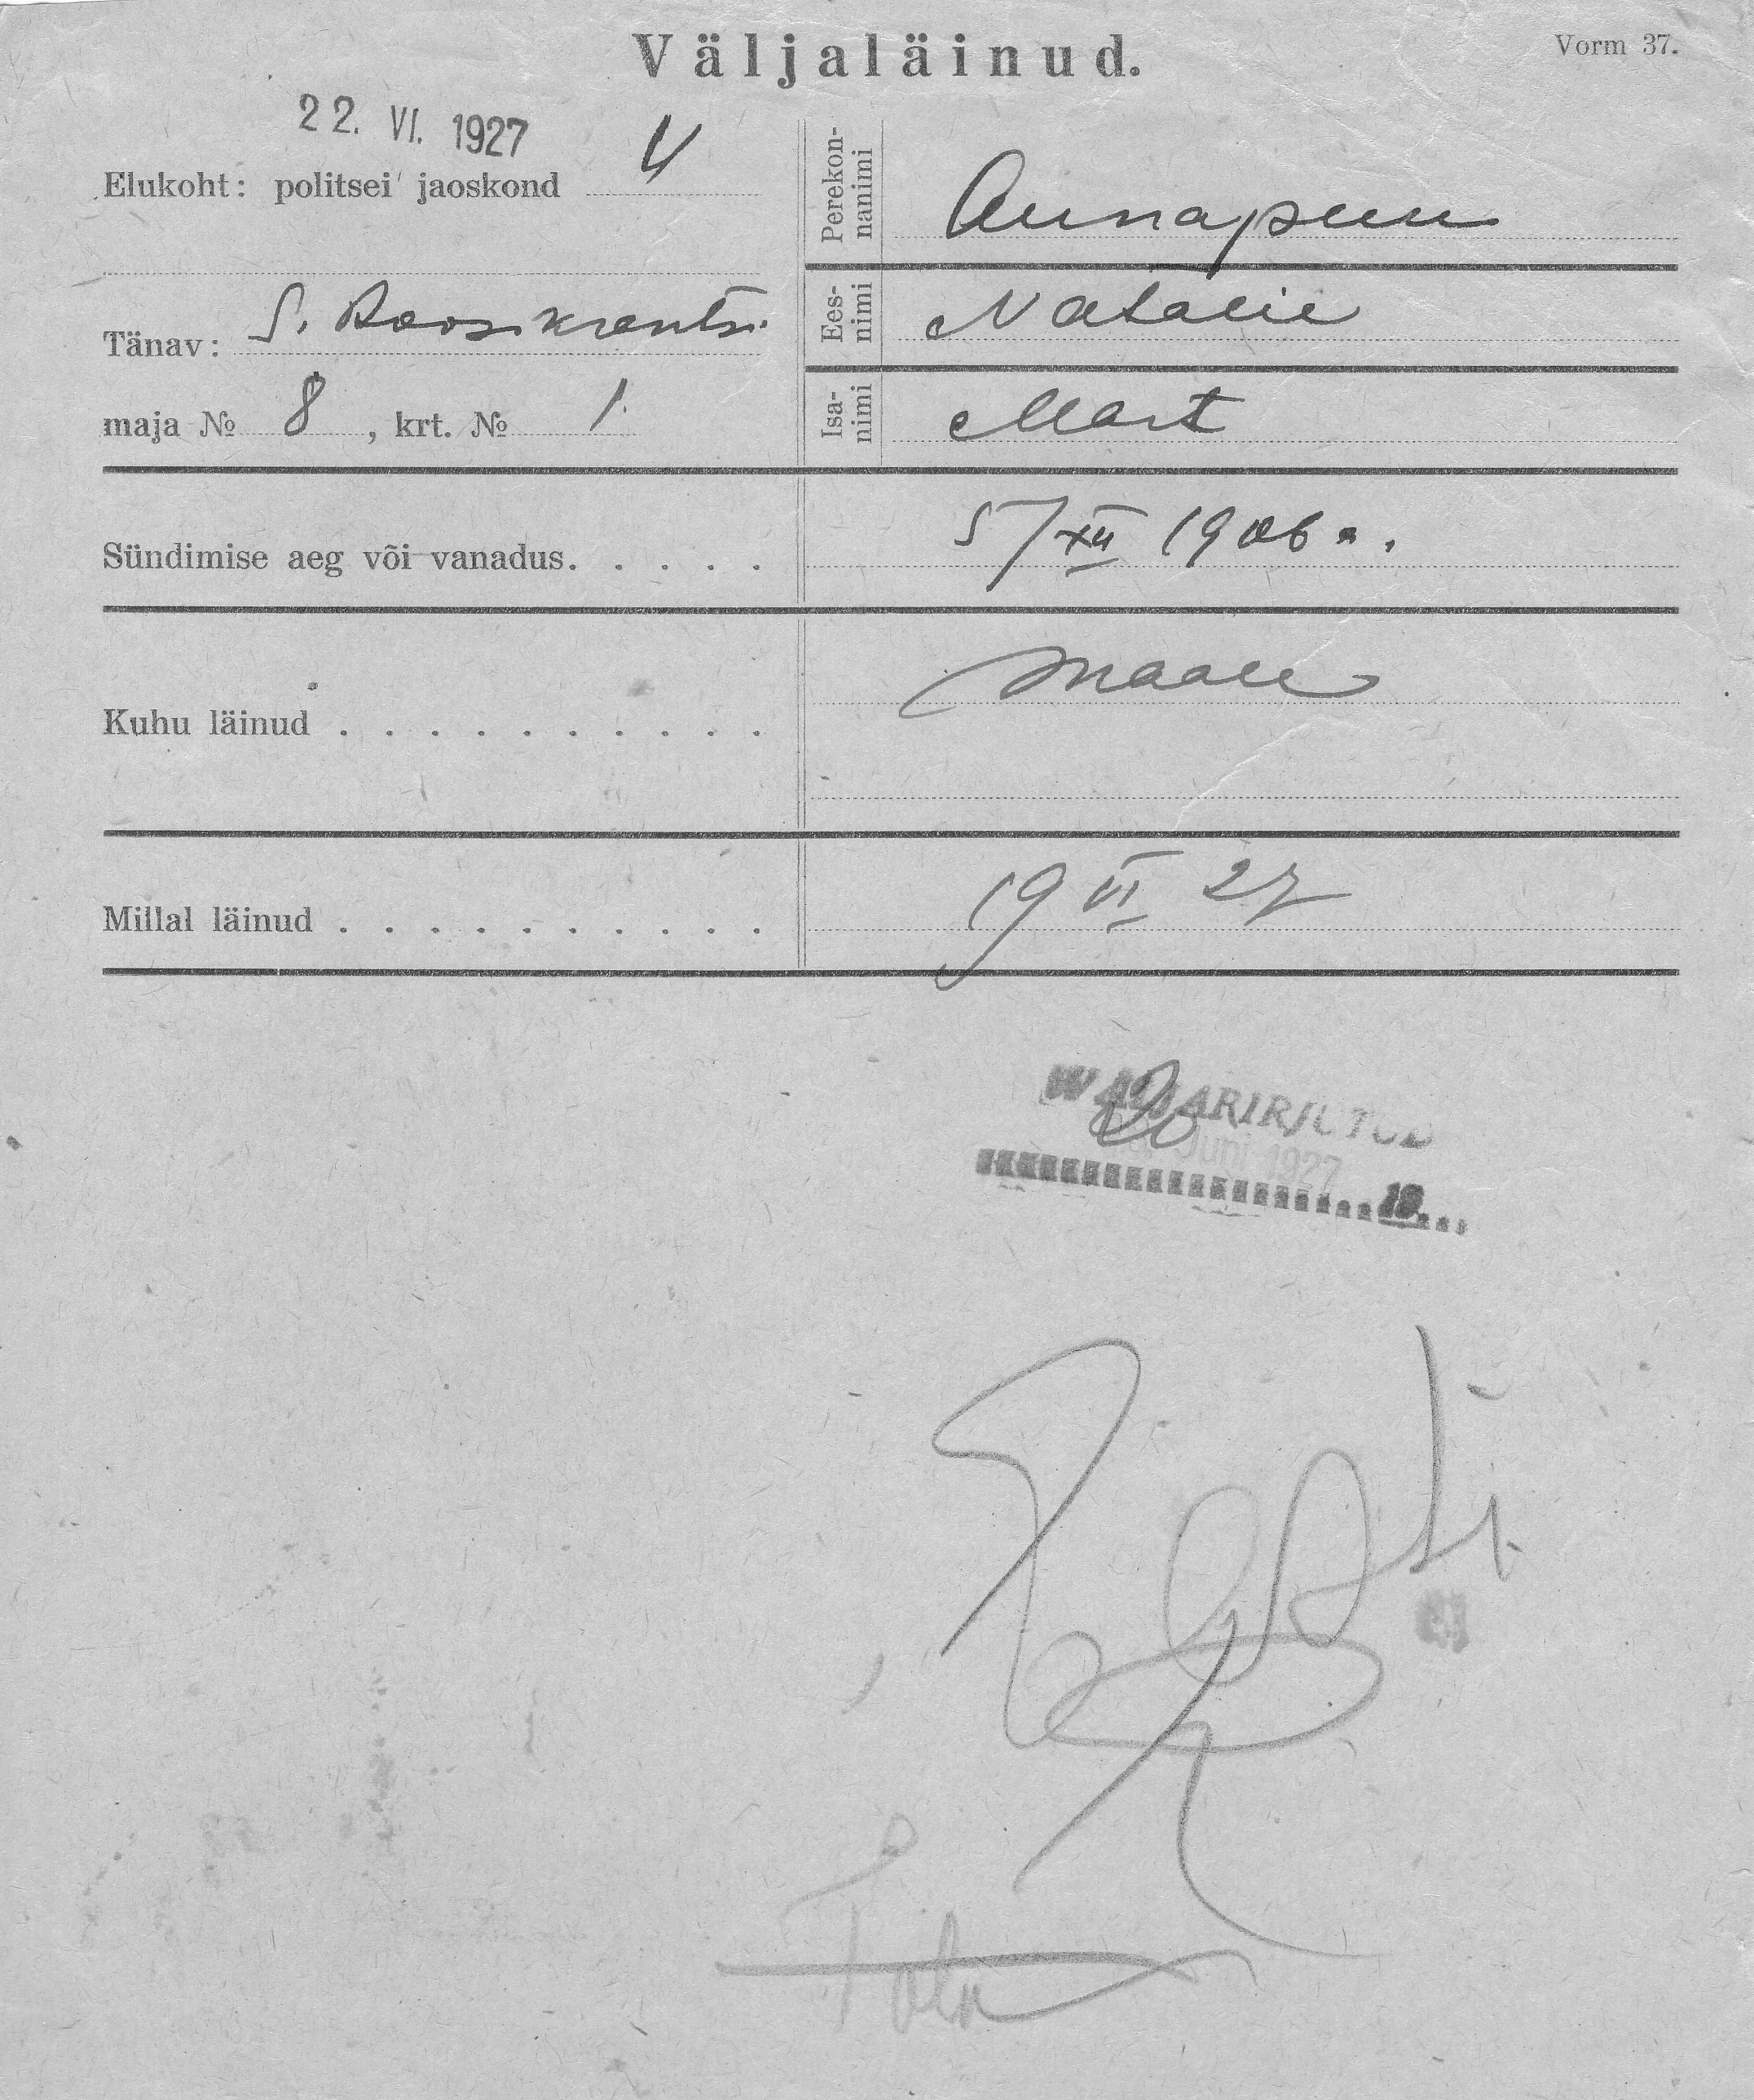 Väljaläinud.
Vorm 37.
22. VI. 1927
Elukoht: politsei jaoskond 4
Tänav: S. Roosikrantsi
maja № 8, krt. № 1.
Perekon-
nanimi
Annapuu
Ees-
nimi
Natalie
Isa-
nimi
Mart
Sündimise aeg või vanadus. . . . . 5/XII 1906 a.
Kuhu läinud . . . . . . . . . . maale
Millal läinud . . . . . . . . . . 19 VI 27
Juni 1927
19